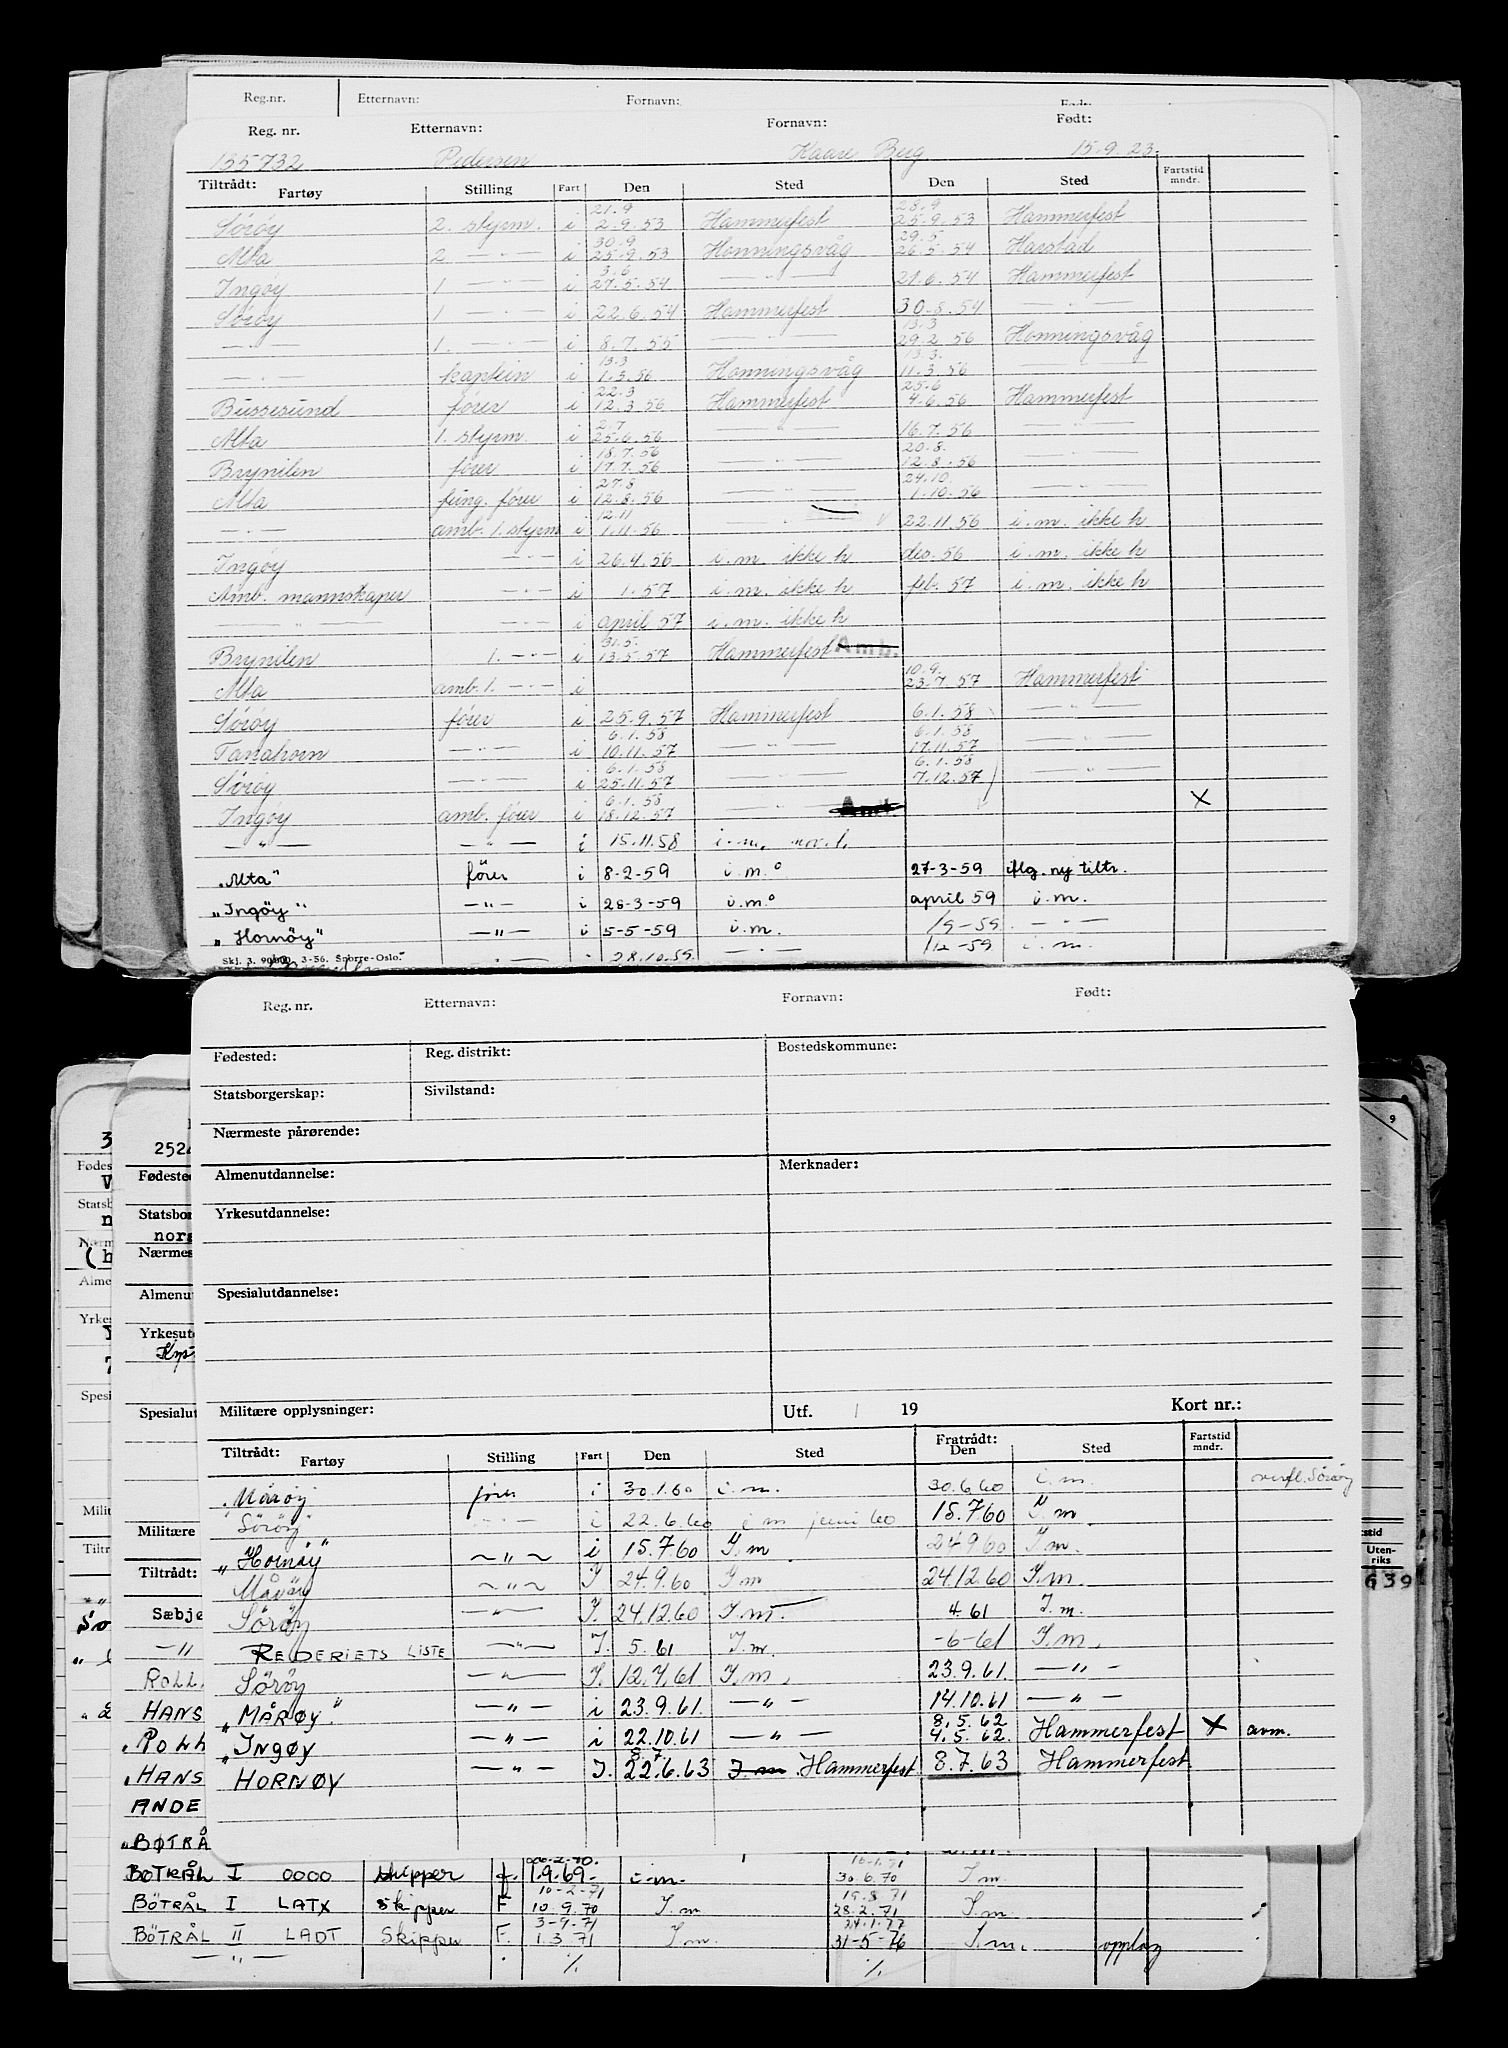 Reg.nr. Etternavn: Fornavn:
Reg. nr. Etternavn: Fornavn: Født:
135732 Pedersen Kaare Berg 15.9.23.
Tiltrådt: Fartøy Stilling Fart Den Sted Den Sted Fartstid mndr.
21.9 28.9
Sørøy 2. styrm. i 2.9.53 Hammerfest 25.9.53 Hammerfest
30.9 29.5
Alta 2 — " — i 25.9.53 Honningsvåg 26.5.54 Harstad
3.6
Ingøy 1 — " — i 27.5.54 — " — 21.6.54 Hammerfest
Sørøy 1 — " — i 22.6.54 Hammerfest 30.8.54 — " —
13.3
— " — 1. — " — i 8.7.55 — " — 29.2.56 Honningsvåg
13.3 13.3.
— " — kaptein i 1.3.56 Honningsvåg 11.3.56 — " —
22.3 25.6
Bussesund fører i 12.3.56 Hammerfest 4.6.56 Hammerfest
2.7
Alta 1. styrm. i 25.6.56 — " — 16.7.56 — " —
18.7.56 20.8.
Brynilen fører i 17.7.56 — " — 12.8.56 — " —
27.8 24.10.
Alta fung. fører i 12.8.56 — " — 1.10.56 — " —
12.11
— " — amb. 1. styrm i 1.11.56 — " — 22.11.56 i.m. ikke h
Ingøy — " — i 26.4.56 i.m. ikke h des. 56 i.m. ikke h
Amb. mannskaper — " — i 1.57 i.m. ikke h feb. 57 i.m. ikke h
— " — — " — i april 57 i.m. ikke h
31.5.
Brynilen 1. — " — i 13.5.57 Hammerfest Amb.
10.9.
Alta amb. 1. — " — i 23.7.57 Hammerfest
Sørøy fører i 25.9.57 Hammerfest 6.1.58 — " —
6.1.58 6.1.58
Tanahorn — " — i 10.11.57 — " — 17.11.57 — " —
6.1.58 6.1.58
Sørøy — " — i 25.11.57 — " — 7.12.57 — " —
6.1.58
Ingøy amb. fører i 18.12.57 — " — Amb. X
— " — — " — i 15.11.58 i.m. nov.l.
„Alta" fører i 8-2-59 i.m. 27-3-59 iflg. ny tiltr.
„Ingøy" — " — i 28-3-59 i.m. april 59 i.m.
„Hornøy" — " — i 5-5-59 i.m. 1/9-59. — " —
Skj. 3. 90000. 3-56. Sporre-Oslo. — " — 28.10.59. — " — 1/12-59 i.m.
Reg. nr. Etternavn: Fornavn: Født:
Fødested: Reg. distrikt: Bostedskommune:
Statsborgerskap: Sivilstand:
Nærmeste pårørende:
Almenutdannelse: Merknader:
Yrkesutdannelse:
Spesialutdannelse:
Militære opplysninger: Utf. / 19 Kort nr.:
Tiltrådt: Fartøy Stilling Fart Den Sted Fratrådt: Den Sted Fartstid mndr.
„Mårøy" fører i 30.1.60 i.m. 30.6.60 i.m. overfl. Sörøy
"Sörøy" — " — i 22.6.60 i m juni 60 15.7.60 I.m
„Hornöy" — " — i 15.7.60 I.m 24.9.60 I.m.
Måröy — " — I 24.9.60 I m 24.12.60 I.m.
Söröy — " — I. 24.12.60 I.m. 4.61 I.m.
REDERIETS LISTE — " — I. 5.61 I.m. -6-61 I.m.
Söröy — " — I. 12.7.61 I.m. 23.9.61. — " —
„MÅRØY." — " — i 23.9.61. — " — 14.10.61 — " —
8.5.62
„INGØY — " — i 22.10.61 — " — 4.5.62. Hammerfest X avm.
8.7.
HORNØY — " — I. 22.6.63 I.m. Hammerfest. 8.7.63 Hammerfest.
Fødes
Statsb
Nærm
Alme
Yrkes
Spesi
Milit
Tiltr
252
Fødested
Statsbor
nors
Nærmes
Almenut
Yrkesut
Spesialut
Militære
Tiltrådt:
Sæbjø
— "
ROLL
HANS
„ROLL
„HANS
ANDE
„BØTRÅ
BØTRÅL I OOOO skipper f. 1.9.69. i.m. 30.6.70 I m
10-2-71 19.8.71
BÖTRÅL I LATX skipper F 10.9.70 I.m 28.2.71 I m.
3-9.71 24.1.77
BÖTRÅL II LADT Skipper F. 1.3.71 I.m. 31-5-76 I.m. opplag
— " — ./. ./.
9
stid
Uten-
riks
639